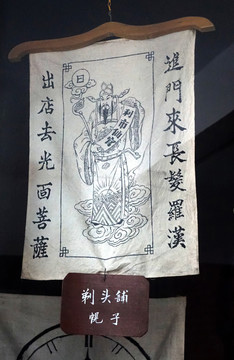 進門來長髮羅漢
出店去光面菩薩
日
剃头铺
幌子